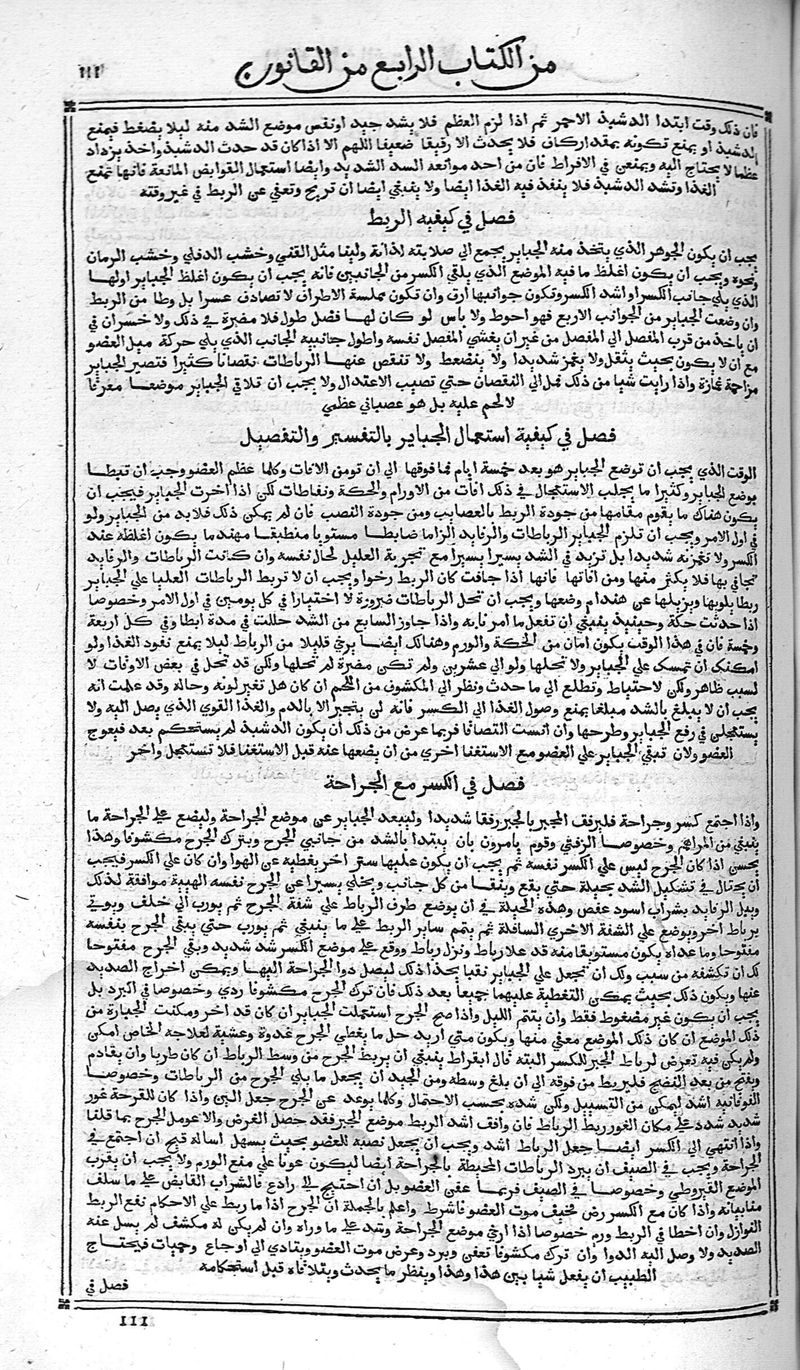 من الكتاب الرابع من القانون
١١١
فان ذلك وقت ابتدا الدشبذ الاحمر ثم اذا لزم العظم فلا يشد جيد اونقس موضع الشد منه ليلا يضغط فيمنع
الدشبذ او يمنع تكونه بمقدار كاف فلا يحدث الا رقيقا ضعيفا اللهم الا اذا كان قد حدث الدشبذ واخذ يزداد
عظما لا يحتاج اليه ويمنعي في الافراط فان من احد موانعه السد الشديد وايضا استعمال القوابض المانعة فانها تمنع
الغذا وتشد الدشبذ فلا ينفذ فيه الغذا ايضا ولا ينبغي ايضا ان تريح وتعفي عن الربط في غير وقته
فصل في كيفيه الربط
يجب ان يكون الجوهر الذي يتخذ منه الجباير يجمع الي صلابته لدانة ولينا مثل القني وخشب الدفلي وخشب الرمان
ونحوه ويجب ان يكون اغلظ ما فيه الموضع الذي يلقي الكسر من الجانبين فانه يجب ان يكون اغلظ الجباير اولها
الذي يلي جانب الكسر او اشد الكسر وتكون جوانبها ارق وان تكون مملسة الاطراف لا تصادف عسرا بل وطا من الربط
وان وضعت الجباير من الجوانب الاربع فهو احوط ولا باس لو كان لها فضل طول فلا مضرة في ذلك ولا خسران في
ان ياخذ من قرب المفصل الي المفصل من غير ان يغشي المفصل نفسه واطول جانبيه الجانب الذي يلي حركة ميل العضو
مع ان لا يكون بحيث يثقل ولا يغمز شديدا ولا ينضغط ولا تنقص عنها الرباطات نقصانا كثيرا فتصير الجباير
مزاحمة غمازة واذا رايت شيا من ذلك فمل الي النقصان حتي تصيب الاعتدال ولا يجب ان تلاقي الجباير موضعا معرقا
لا لحم عليه بل هو عصباني عظمي
فصل في كيفية استعمال الجباير بالتفسير والتفصيل
الوقت الذي يجب ان توضع الجباير هو بعد خمسة ايام فما فوقها الي ان تومن الافات وكلما عظم العضو وجب ان تبطا
بوضع الجباير وكثيرا ما يجلب الاستعجال في ذلك افات من الاورام والحكة ونفاطات لكن اذا اخرت الجباير فيجب ان
يكون هناك ما يقوم مقامها من جودة الربط بالعصايب ومن جودة النصب فان لم يمكن ذلك فلا بد من الجباير ولو
في اول الامر ويجب ان تلزم الجباير الرباطات والرفايد الزاما ضابطا مستويا منطبقا مهندما يكون اغلظه عند
الكسر ولا تغمزنه شديدا بل تزيد في الشد يسيرا يسيرا مع تجربة العليل لحال نفسه وان كانت الرباطات والرفايد
تجافي بها فلا يكثر منها ومن افاتها فانها اذا جافت كان الربط رخوا ويجب ان لا تربط الرباطات العليا علي الجباير
ربطا يلويها ويزيلها عن هندام وضعها ويجب ان تحل الرباطات ضرورة لا اختيارا في كل يومين في اول الامر وخصوصا
اذا حدثت حكة وحينيذ ينبغي ان تفعل ما امرنا به واذا جاوز السابع من الشد حللت في مدة ابطا وفي كل اربعة
وخمسة فان في هذا الوقت يكون امان من الحكة والورم وهنالك ايضا يرخي قليلا من الرباط ليلا يمنع نفوذ الغذا ولو
امكنك ان تمسك علي الجباير ولا تحلها ولو الي عشرين ولم تكن مضرة لم تحلها ولكن قد تحل في بعض الاوقات لا
لسبب ظاهر ولكن لاحتياط وتطلع الي ما حدث ونظر الي المكشوف من اللحم ان كان هل تغير لونه وحاله وقد علمت انه
يجب ان لا يبلغ بالشد مبلغا يمنع وصول الغذا الي الكسر فانه لن ينجبر الا بالدم والغذا القوي الذي يصل اليه ولا
يستعجلن في رفع الجباير وطرحها وان انست التصاقا فربما عرض من ذلك ان يكون الدشبذ لم يستحكم بعد فيعوج
العضو ولان تبقي الجباير علي العضو مع الاستغنا اخري من ان يضعها عنه قبل الاستغنا فلا تستعجل واخر
فصل في الكسر مع الجراحة
واذا اجتمع كسر وجراحة فليرفق المجبر بالجبر رفقا شديدا وليبعد الجباير عن موضع الجراحة وليضع علي الجراحة ما
ينبغي من المراهم وخصوصا الزفتي وقوم يامرون بان يبتدا بالشد من جانبي الجرح ويترك الجرح مكشوفا وهذا
يحسن اذا كان الجرح ليس علي الكسر نفسه ثم يجب ان يكون عليها ستر اخر يغطيه عن الهوا وان كان علي الكسر فيجب
ان يحتال في تشكيل الشد بحيلة حتي يقع وينقا من كل جانب ويخلي يسيرا عن الجرح نفسه الهيية موافقة لذلك
ويبل الرفايد بشراب اسود عفص وهذه الحيلة في ان يوضع طرف الرباط علي شفة الجرح ثم يورب الي خلف ويوتي
برباط اخر ويوضع علي الشفة الاخري السافلة ثم يتمم ساير الربط علي ما ينبغي ثم يورب حتي يبقي الجرح بنفسه
مفتوحا وما عداه يكون مستوثقا منه قد علا رباط ونزل رباط ووقع علي موضع الكسر شد شديد وبقي الجرح مفتوحا
لك ان تكشفه من سبب ولك ان تجعل علي الجباير نقبا بحذا ذلك ليصل دوا الجراحة اليها ويمكن اخراج الصديد
عنها ويكون ذلك بحيث يمكن التغطية عليهما جميعا بعد ذلك فان ترك الجرح مكشوفا ردي وخصوصا في البرد بل
يجب ان يكون غير مضغوط فقط وان يتمم الليل واذا صح الجرح استعملت الجباير ان كان قد اخر ومكنت الجبارة من
ذلك الموضع ان كان ذلك الموضع معفي منها ويكون متي اريد حل ما يغطي الجرح غدوة وعشية لعلاجه الخاص امكن
ولم يكن فيه تعرض لرباط الجبر للكسر البته قال ابقراط ينبغي ان يربط الجرح من وسط الرباط ان كان طريا وان يقادم
ويفتح من بعد النضج فليربط من فوقه الي ان بلغ وسطه ومن الجيد ان يجعل ما يلي الجرح من الرباطات وخصوصا
الفوقانية اشد ليمكن من التسييل ولكن شده بحسب الاحتمال وكلما بوعد عن الجرح جعل الين واذا كان للقرحة غور
شديد شد علي مكان الغور ربط الرباط فان وافق اشد الربط موضع الجبر فقد حصل الغرض والا عومل الجرح بما قلنا
واذا انتهي الي الكسر ايضا جعل الرباط اشد ويجب ان يجعل نصبة للعضو بحيث يسهل اسالة قيح ان اجتمع في
الجراحة ويجب في الصيف ان يبرد الرباطات المحيطة بالجراحة ايضا ليكون عونا علي منع الورم ولا يجب ان يقرب
الموضع القيروطي وخصوصا في الصيف فربما عفن العضو بل ان احتيج الي رادع فالشراب القابض علي ما سلف
مقابياته واذا كان مع الكسر رض مخيف موت العضو فاشرط واعلم بالجملة ان الجرح اذا ما ربط علي الاحكام نفع الربط
النوازل وان اخطا في الربط ورم خصوصا اذا ارخي موضع الجراحة وشد علي ما وراه وان لم يكن له مكشف لم يسل عنه
الصديد ولا وصل اليه الدوا وان ترك مكشوفا تعفن وبرد وعرض موت العضو ويتادي الي اوجاع وحميات فيحتاج
الطبيب ان يفعل شيا بين هذا وهذا وينظر ما يحدث ويتلافاه قبل استحكامه
فصل في
III